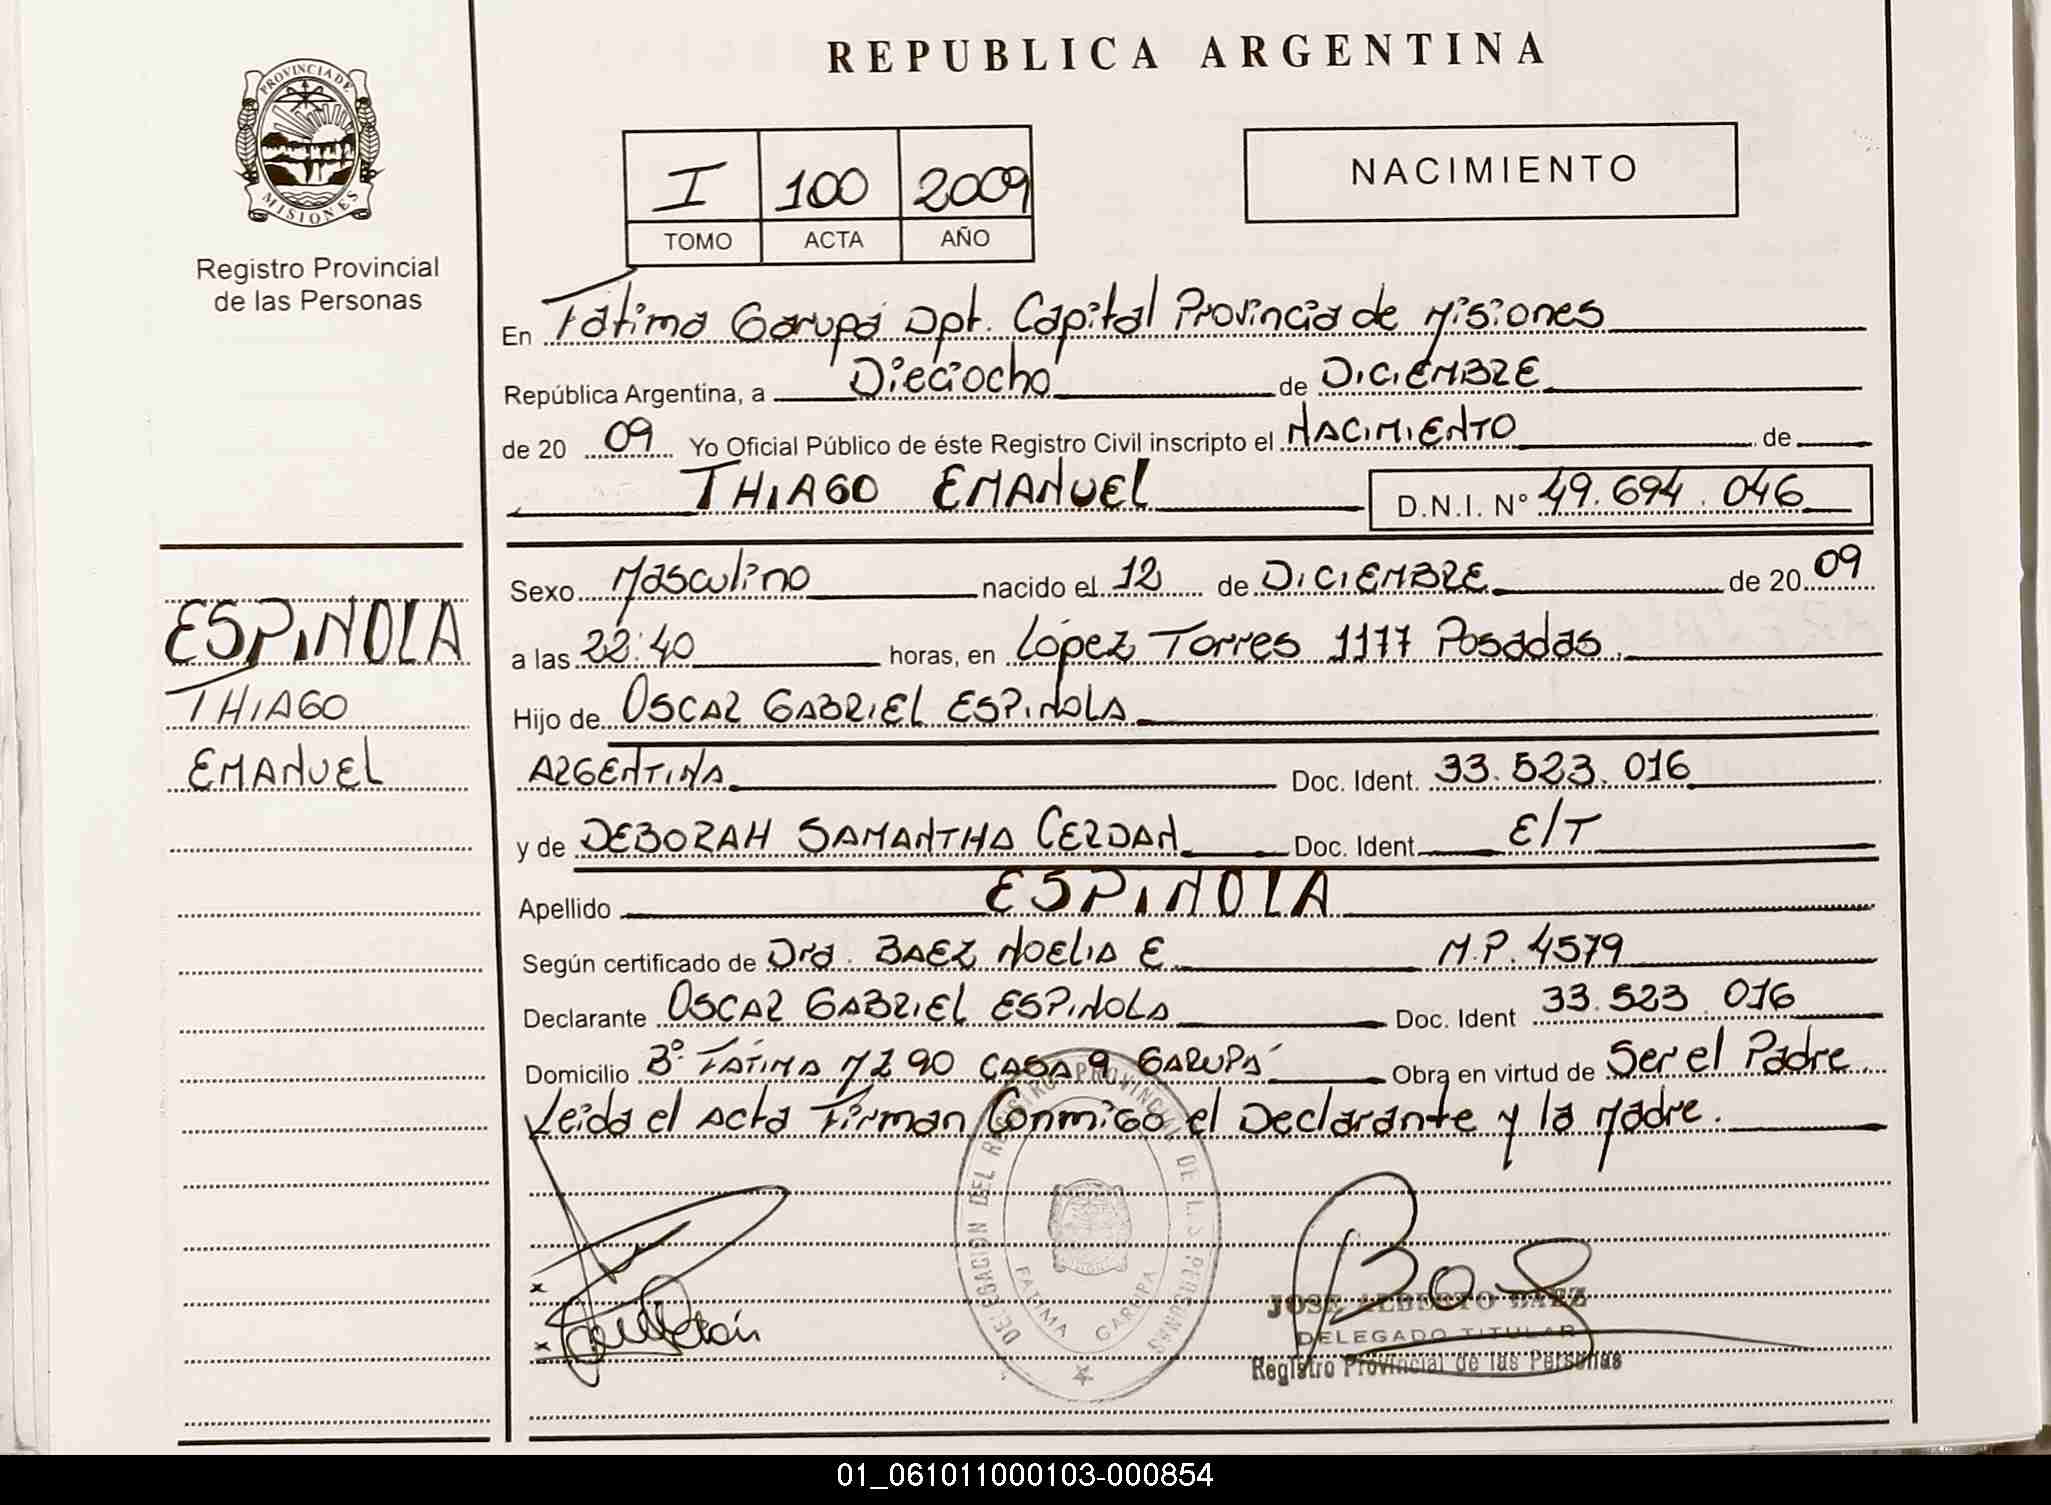 REPUBLICA ARGENTINA
PROVINCIA DE
MISIONES
Registro Provincial
de las Personas
I 100 2009
TOMO ACTA AÑO
NACIMIENTO
En Fátima Garupá Dpt. Capital Provincia de Misiones
República Argentina, a Dieciocho de DICIEMBRE
de 20 09 Yo Oficial Público de éste Registro Civil inscripto el NACIMIENTO de
THIAGO EMANUEL D.N.I. N° 49.694.046
ESPINOLA
THIAGO
EMANUEL
Sexo Masculino nacido el 12 de DICIEMBRE de 20 09
a las 22:40 horas, en López Torres 1177 Posadas.
Hijo de OSCAR GABRIEL ESPINOLA
ARGENTINA Doc. Ident. 33.523.016
y de DEBORAH SAMANTHA CERDAN Doc. Ident. E/T
Apellido ESPINOLA
Según certificado de Dra. BAEZ NOELIA E M.P. 4579
Declarante OSCAR GABRIEL ESPINOLA Doc. Ident 33.523.016
Domicilio B° FÁTIMA MZ 90 CASA 9 GARUPÁ Obra en virtud de Ser el Padre
Leida el Acta Firman Conmigo el Declarante y la Madre.
DELEGACION DEL REGISTRO PROVINCIAL DE LAS PERSONAS
FATIMA GARUPA
JOSE ALBERTO BAEZ
DELEGADO TITULAR
Registro Provincial de las Personas
01_061011000103-000854